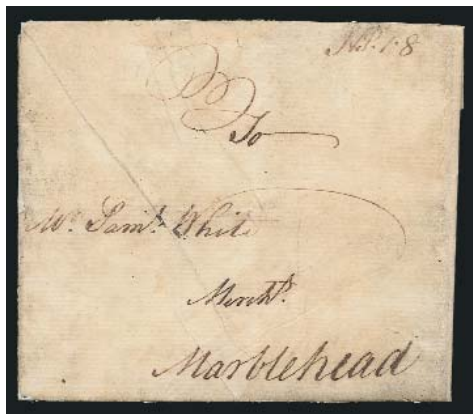 N.P. 1:8
To
Mr. Samˡ. White
Mercht.
Marblehead